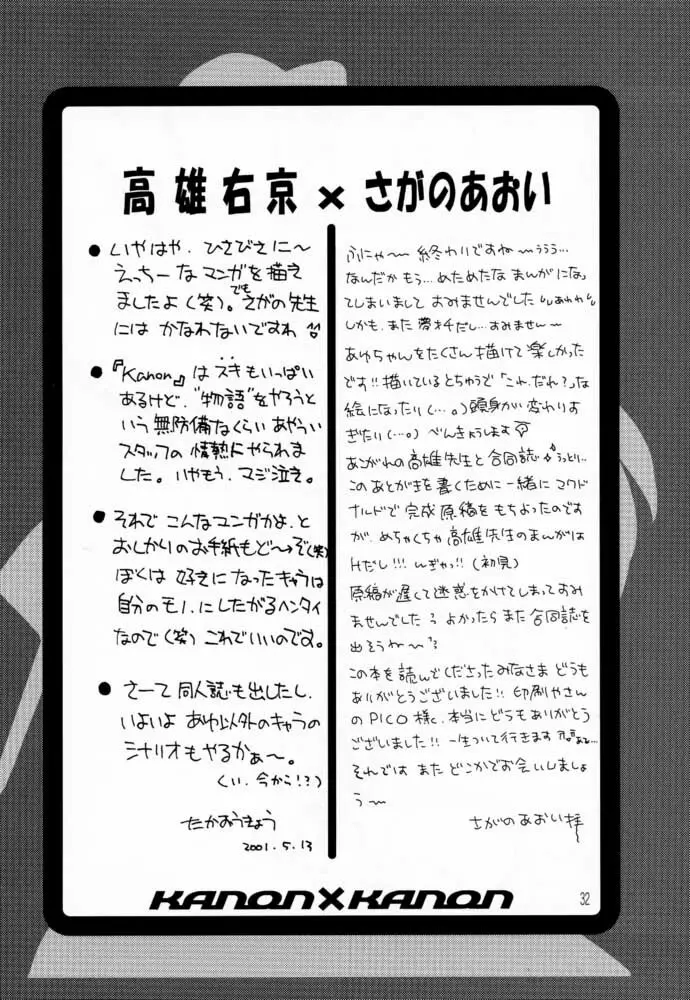 高雄右京×さがのあおい
● いやはや、ひさびさに～
えっちーなマンガを描え
ましたよ(笑)。でもさがの先生
には かなわないですわ
● 『Kanon』はスキもいっぱい
あるけど、"物語"をやろうと
いう無防備なくらいあやうい
スタッフの情熱にやられま
した。いやもう、マジ泣き。
● それで こんなマンガかよ、と
おしかりのお手紙もど～ぞ(笑)
ぼくは 好きになったキャラは
自分のモノにしたがるヘンタイ
なので(笑) これでいいのです。
● さーて 同人誌も出したし、
いよいよ あゆ以外のキャラの
シナリオもやるかぁ～。
(い、今から!?)
たかおうきょう
2001.5.13
ふにゃ～ 終わりですね～ううう…
なんだか もう…めためたな まんがになっ
てしまいまして すみませんでした
しかも、また 夢オチだし…すみません～
あゆちゃんをたくさん描けて楽しかった
です!! 描いているとちゅうで「これ、だれ?」な
絵になったり(…。)頭身が変わりす
ぎたり(…。) べんきょうします
あこがれの高雄先生と合同誌 うっとり…
このあとがきを書くために一緒にマクド
ナルドで 完成原稿をもちよったのです
が、めちゃくちゃ高雄先生のまんがは
Hだし!!! んぎゃっ!! (初見)
原稿が遅くて迷惑をかけてしまってすみ
ませんでした よかったら また 合同誌を
出そうね～
この本を読んでくださったみなさま どうも
ありがとうございました!! 印刷やさん
のPICO様、本当にどうもありがとう
ございました!! 一生ついて行きます
それでは また どこかでお会いしましょ
う～
さがのあおい拝
KANON×KANON
32